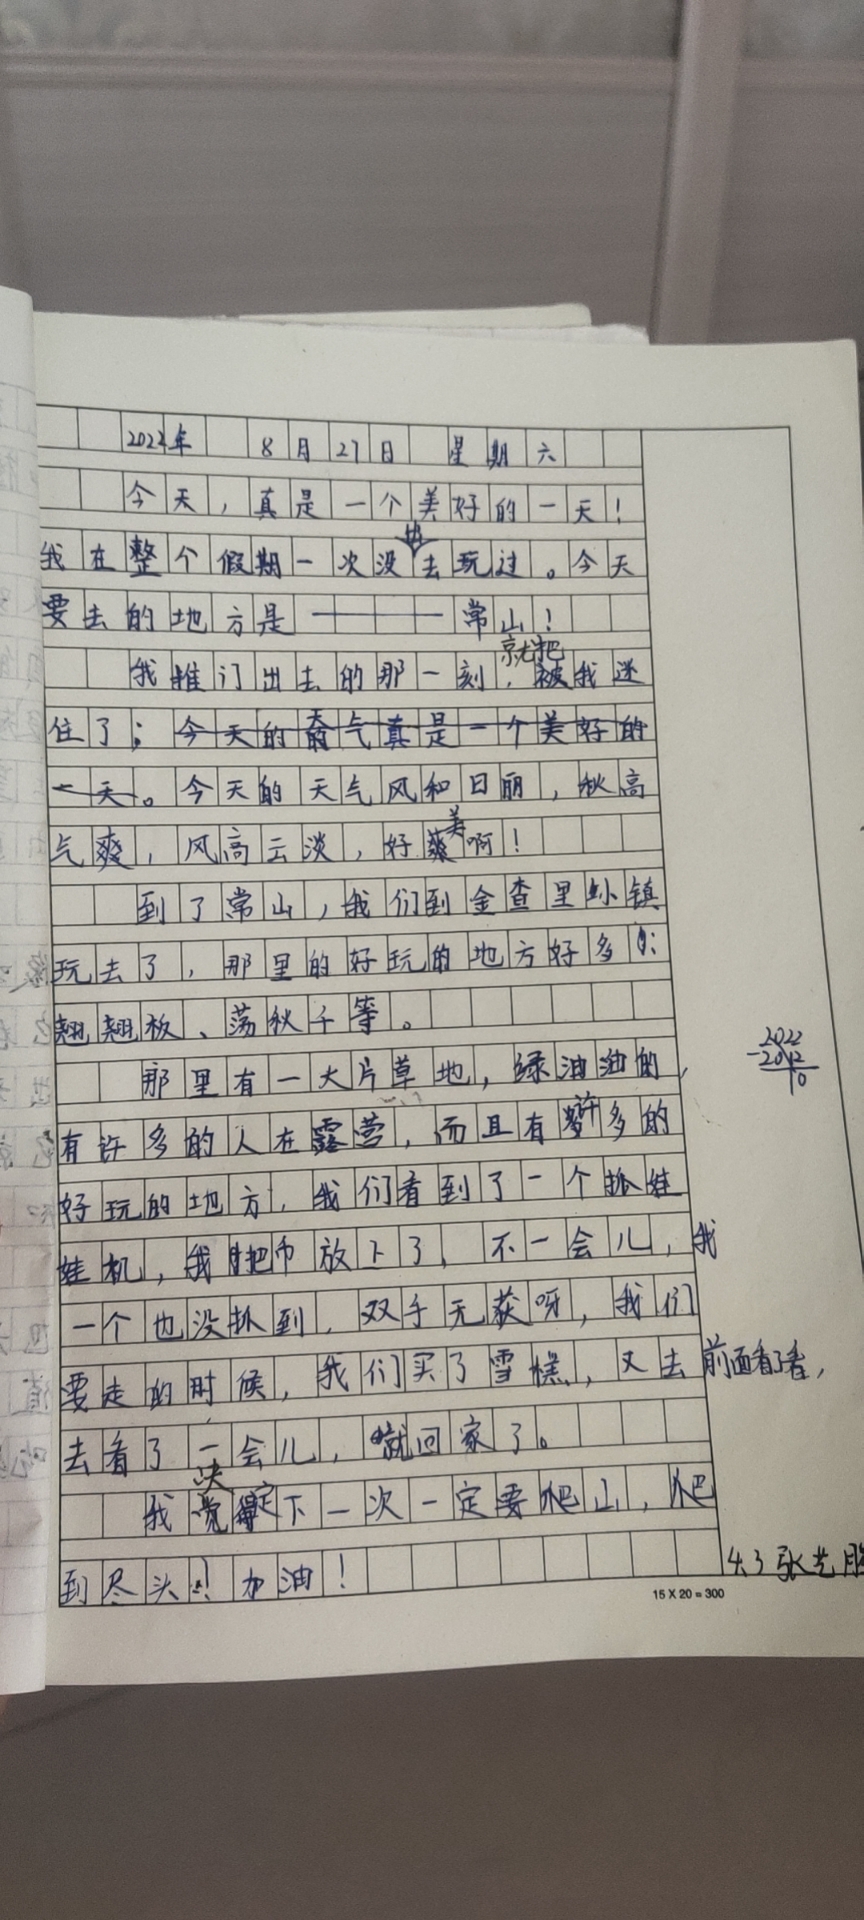 2022年 8月27日 星期六
今天，真是一个美好的一天！
我在整个假期一次没出去玩过。今天
要去的地方是———常山！
我推门出去的那一刻，就把我迷
住了；今天的天气真是一个美好的
一天。今天的天气风和日丽，秋高
气爽，风高云淡，好美啊！
到了常山，我们到金查里小镇
玩去了，那里的好玩的地方好多：
翘翘板、荡秋千等。
那里有一大片草地，绿油油的，
有许多的人在露营，而且有许多的
好玩的地方，我们看到了一个抓娃
娃机，我把币放下了，不一会儿，我
一个也没抓到，双手无获呀，我们
要走的时候，我们买了雪糕，又去前面看了看，
去看了一会儿，就回家了。
我决定下一次一定要爬山，爬
到尽头！加油！
2022
-2012
10
4.3张艺
15×20=300